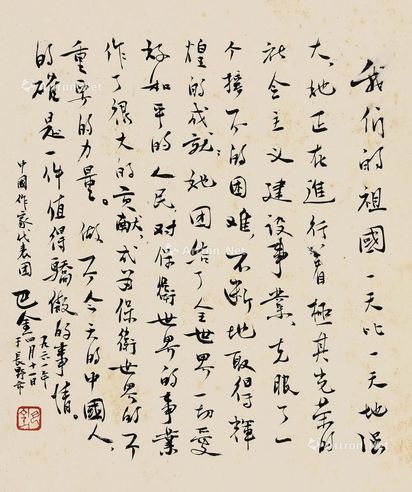 我们的祖國一天比一天地强
大，她正在進行着極其光荣的
社会主义建设事業，克服了一
个接一个的困难，不断地取得輝
煌的成就，她团结了全世界一切爱
好和平的人民，对保衛世界的事業
作了很大的貢献，成为保衛世界的不
重要的力量。做一个今天的中國人，
的確是一件值得驕傲的事情。
中國作家代表团
巴金
一九六一年
四月十一日
于長野市